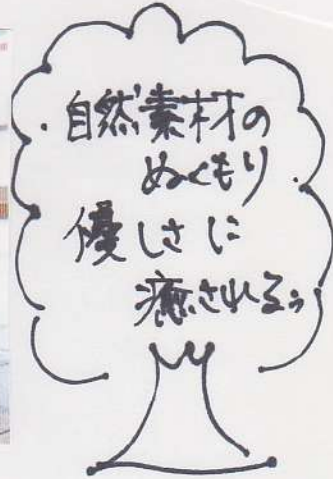 自然素材の
ぬくもり
優しさに
癒されるぅ